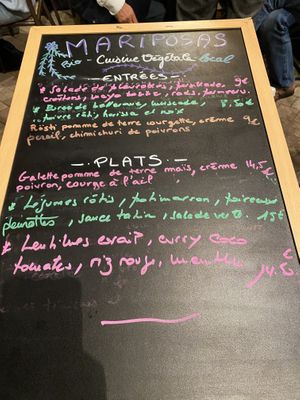 MARIPOSAS
Bio - Cuisine Végétale local
ENTRÉES
* Salade de pleurotes, persillade, 9€
croûtons, mayo
* Purée de betterave, muscade, 8.50€
poivre rôti, harissa et noix
Rösti pomme de terre courgette, crème 9€
persil, chimichuri de poivrons
- PLATS -
Galette pomme de terre maïs, crème 14,5€
poivron, courge à l'ail
* Légumes rôtis, potimarron, poireaux
pleurotes, sauce tahin, salade verte. 15€
* Lentilles corail, curry coco
tomates, riz rouge, menthe €
14.50